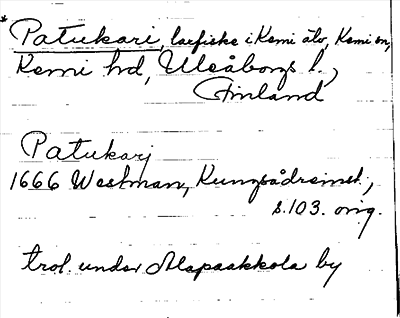 * Patukari, laxfiske i Kemi älv, Kemi sn,
Kemi hd, Uleåborgs l.,
Finland
Patukarj
1666 Westman, Kungsådremst.,
s.103. orig.
trol. under Alapaakkola by